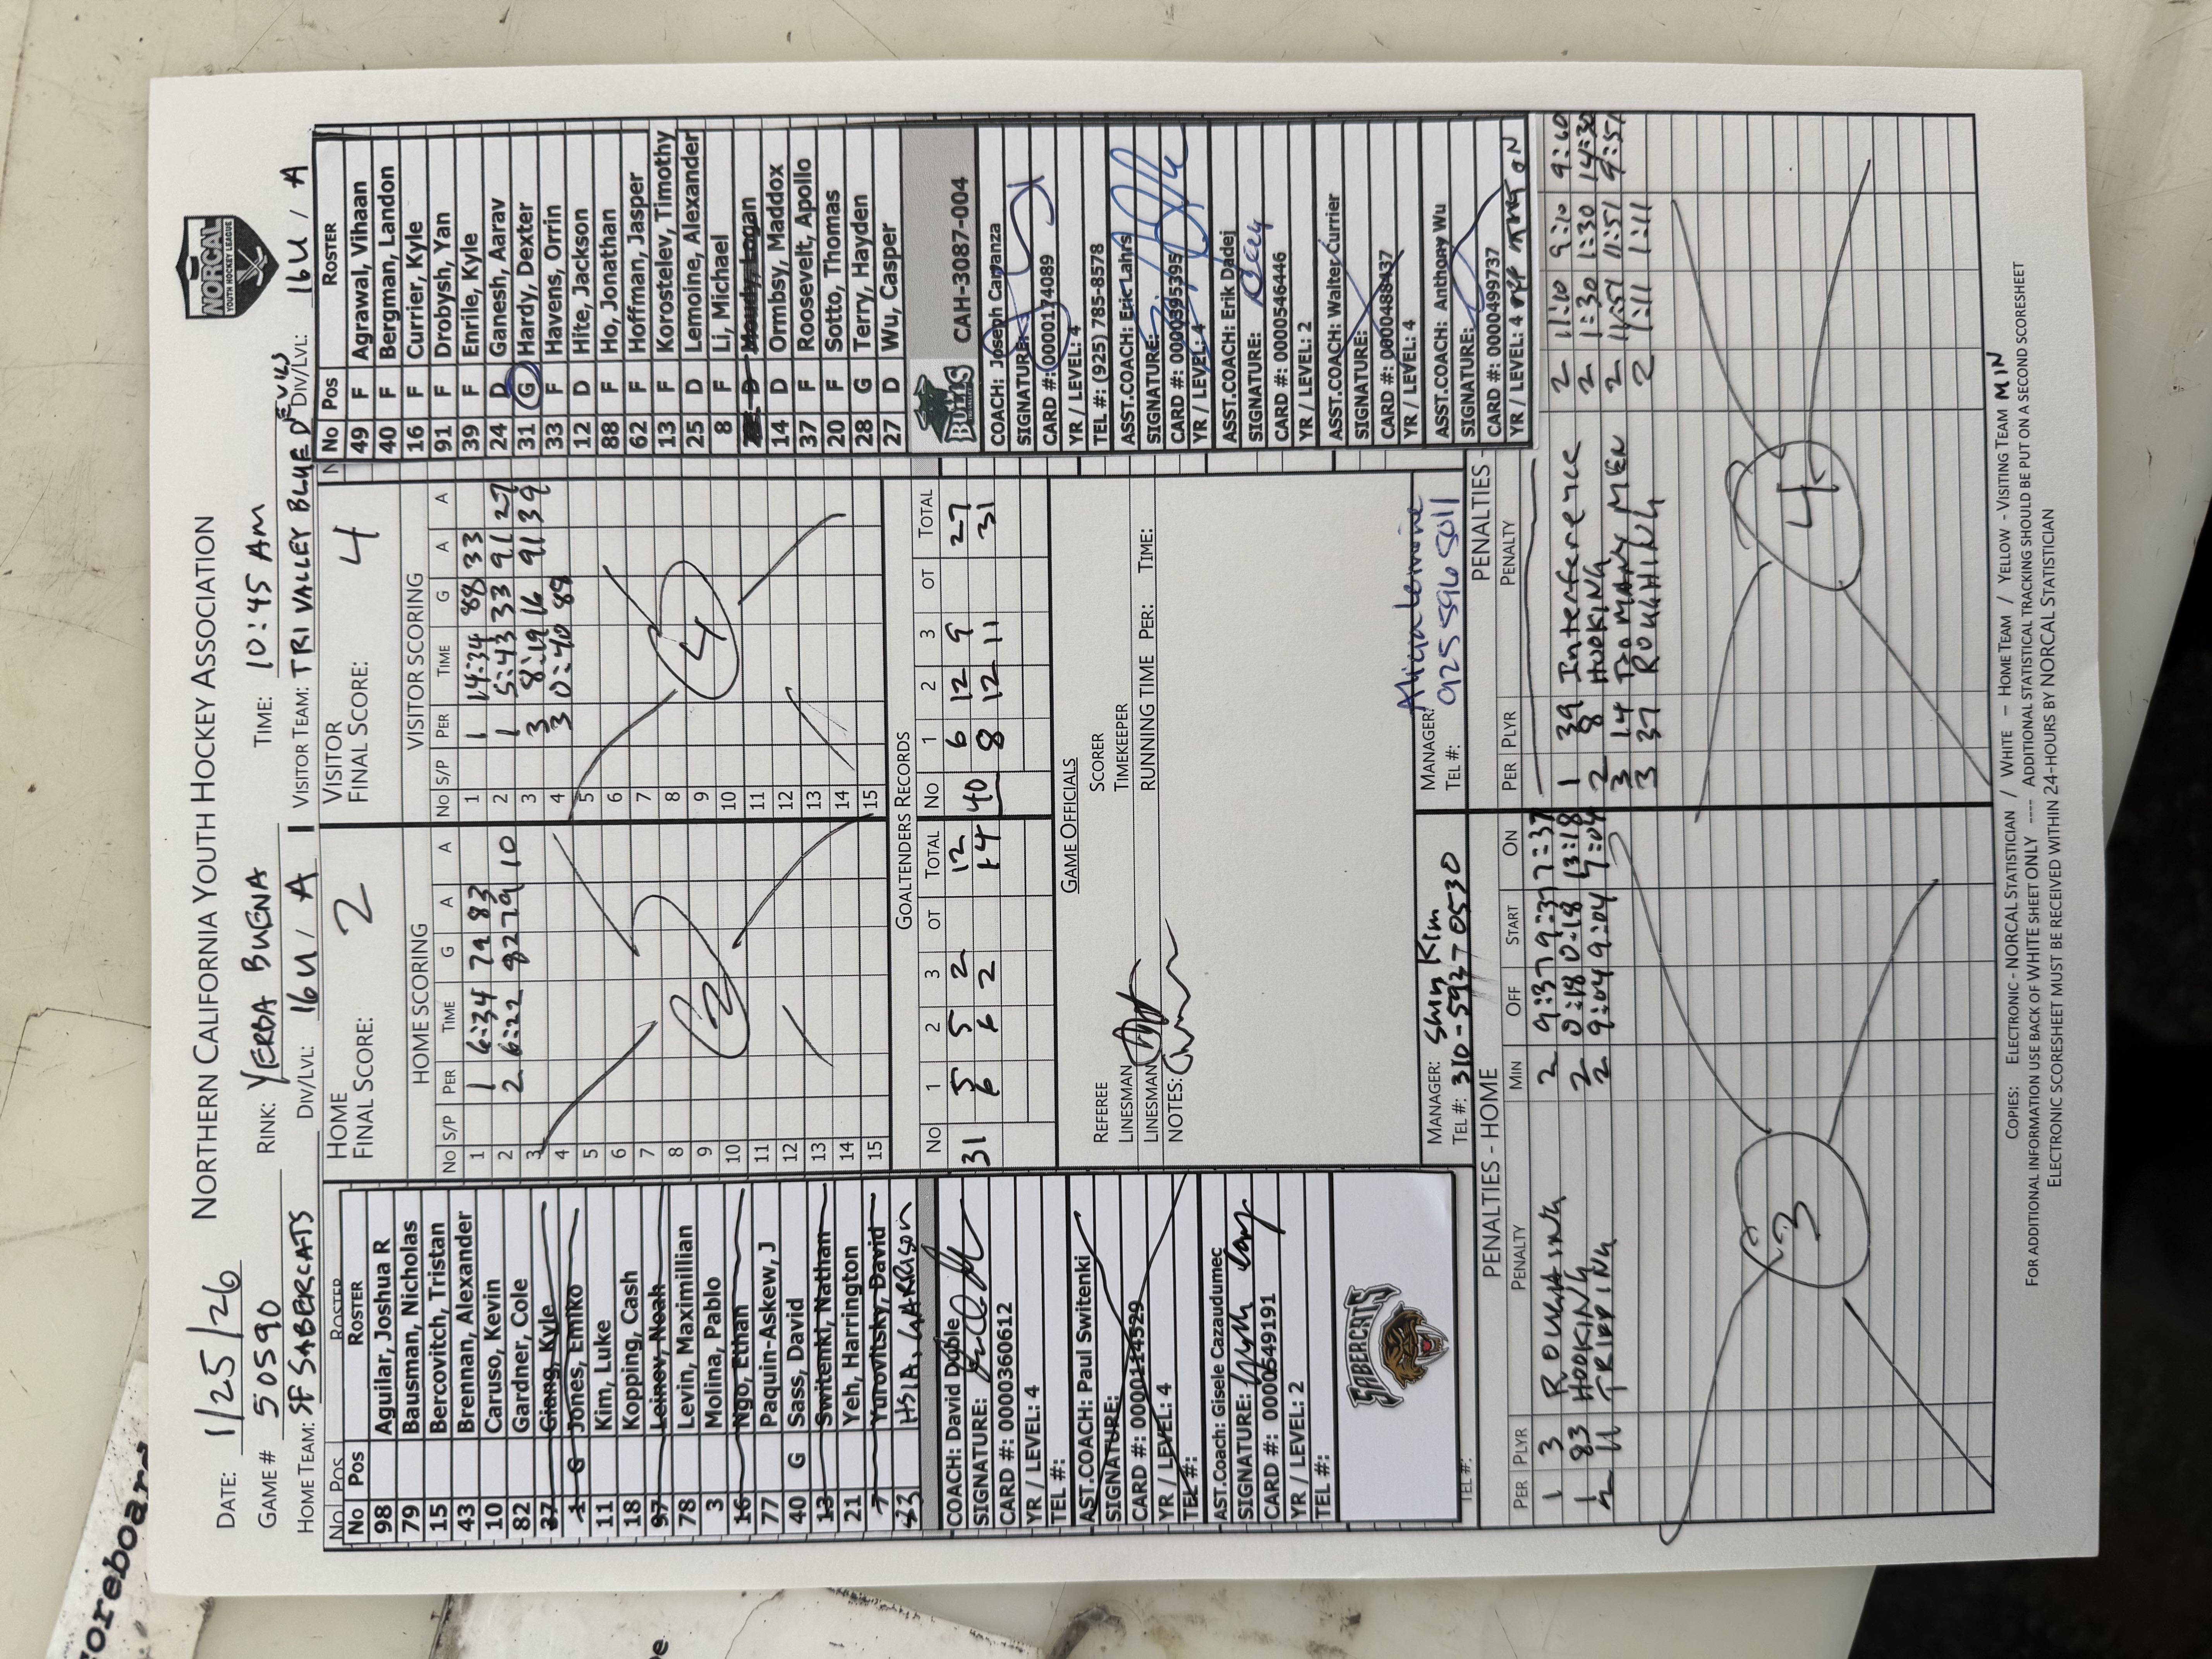 NORTHERN CALIFORNIA YOUTH HOCKEY ASSOCIATION
NORCAL
YOUTH HOCKEY LEAGUE
DATE: 1/25/26
GAME # 50590
RINK: YERBA BUENA
TIME: 10:45 AM
HOME TEAM: SF SABERCATS
DIV/LVL: 16U / A
VISITOR TEAM: TRI VALLEY BLUE DEVILS
DIV/LVL: 16U / A
No Pos ROSTER
No Pos ROSTER
98 Aguilar, Joshua R
79 Bausman, Nicholas
15 Bercovitch, Tristan
43 Brennan, Alexander
10 Caruso, Kevin
82 Gardner, Cole
37 Giang, Kyle
1 G Jones, Emiko
11 Kim, Luke
18 Kopping, Cash
97 Leinov, Noah
78 Levin, Maximillian
3 Molina, Pablo
16 Ngo, Ethan
77 Paquin-Askew, J
40 G Sass, David
13 Switenki, Nathan
21 Yeh, Harrington
7 Yurovitsky, David
HSIA, CARSON
COACH: David Duble
SIGNATURE:
CARD #: 0000360612
YR / LEVEL: 4
TEL #:
AST.COACH: Paul Switenki
SIGNATURE:
CARD #: 0000114529
YR / LEVEL: 4
TEL #:
AST.Coach: Gisele Cazaudumec
SIGNATURE:
CARD #: 0000549191
YR / LEVEL: 2
TEL #:
SABERCATS
TEL #:
HOME
FINAL SCORE: 2
HOME SCORING
No S/P PER TIME G A A
1 1 6:34 79 83
2 2 6:22 82 79 10
3
4
5
6
7
8
9
10
11
12
13
14
15
2
VISITOR
FINAL SCORE: 4
VISITOR SCORING
No S/P PER TIME G A A
1 1 14:34 88 33
2 1 5:43 33 91 27
3 3 8:19 16 91 39
4 3 0:40 88
5
6
7
8
9
10
11
12
13
14
15
4
GOALTENDERS RECORDS
No 1 2 3 OT TOTAL No 1 2 3 OT TOTAL
31 5 5 2 12 40 6 12 9 27
6 6 2 14 8 12 11 31
GAME OFFICIALS
REFEREE SCORER
LINESMAN TIMEKEEPER
LINESMAN RUNNING TIME PER: TIME:
NOTES:
MANAGER: Shin Kim
TEL #: 310-592-0530
MANAGER: Alicia Lemoine
TEL #: 925 596 5011
No Pos ROSTER
49 F Agrawal, Vihaan
40 F Bergman, Landon
16 F Currier, Kyle
91 F Drobysh, Yan
39 F Enrile, Kyle
24 D Ganesh, Aarav
31 G Hardy, Dexter
33 F Havens, Orrin
12 D Hite, Jackson
88 F Ho, Jonathan
62 F Hoffman, Jasper
13 F Korostelev, Timothy
25 D Lemoine, Alexander
8 F Li, Michael
D Moudy, Logan
14 D Ormbsy, Maddox
37 F Roosevelt, Apollo
20 F Sotto, Thomas
28 G Terry, Hayden
27 D Wu, Casper
BULLS
CAH-3087-004
COACH: Joseph Capanza
SIGNATURE:
CARD #: 0000174089
YR / LEVEL: 4
TEL #: (925) 785-8578
ASST.COACH: Eric Lahrs
SIGNATURE:
CARD #: 0000395395
YR / LEVEL: 4
ASST.COACH: Erik Dadej
SIGNATURE:
CARD #: 0000546446
YR / LEVEL: 2
ASST.COACH: Walter Currier
SIGNATURE:
CARD #: 0000488437
YR / LEVEL: 4
ASST.COACH: Anthony Wu
SIGNATURE:
CARD #: 0000499737
YR / LEVEL: 4
PENALTIES - HOME
PER PLYR PENALTY MIN OFF START ON
1 3 ROUGHING 2 9:37 9:37 7:37
1 83 HOOKING 2 0:18 0:18 13:18
2 11 TRIPPING 2 9:04 9:04 7:04
3
PENALTIES -
PER PLYR PENALTY
1 39 Interference 2 11:10 9:10 9:10
2 8 HOOKING 2 1:30 1:30 14:30
3 14 TOO MANY MEN 2 11:51 11:51 9:51
3 37 ROUGHING 2 1:11 1:11
4
Copies: ELECTRONIC - NORCAL STATISTICIAN / WHITE – HOME TEAM / YELLOW - VISITING TEAM MIN
FOR ADDITIONAL INFORMATION USE BACK OF WHITE SHEET ONLY ---- ADDITIONAL STATISTICAL TRACKING SHOULD BE PUT ON A SECOND SCORESHEET
ELECTRONIC SCORESHEET MUST BE RECEIVED WITHIN 24-HOURS BY NORCAL STATISTICIAN
oreboard